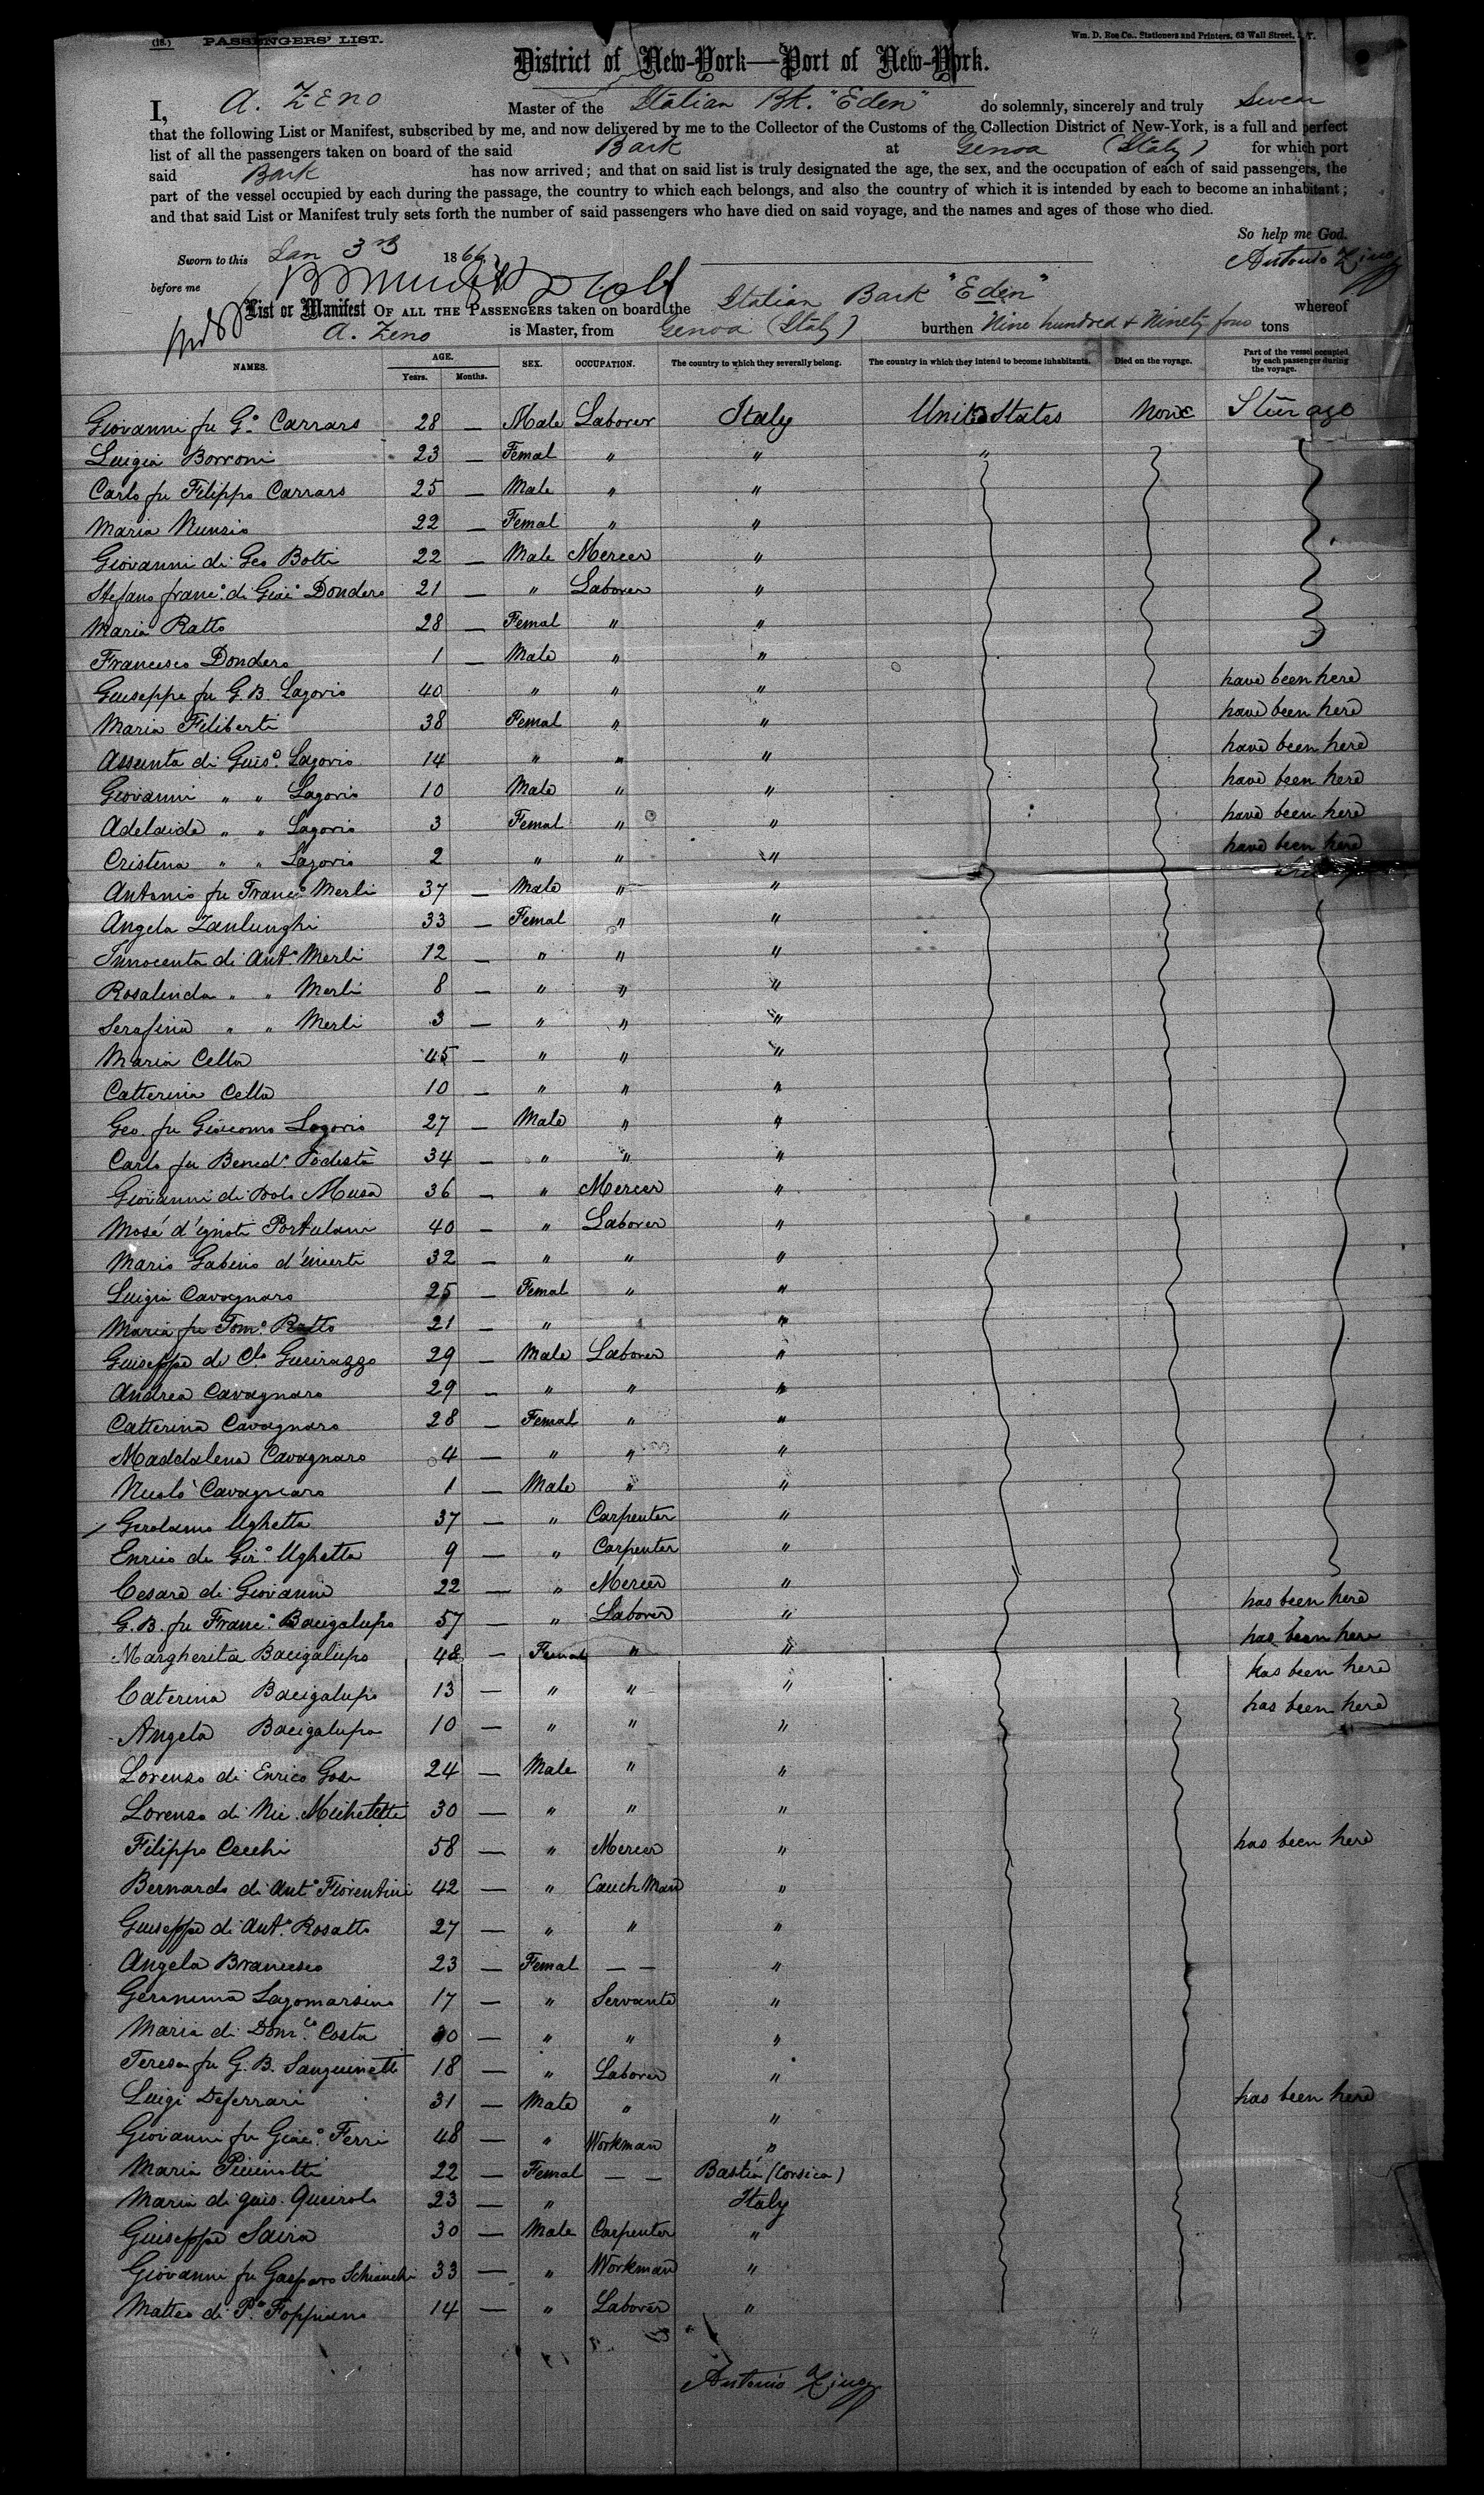 (18.) PASSENGERS' LIST. Wm. D. Roe Co., Stationers and Printers, 63 Wall Street, N.Y.
District of New-York—Port of New-York.
I, A. Zeno Master of the Italian Bk. "Eden" do solemnly, sincerely and truly Swear
that the following List or Manifest, subscribed by me, and now delivered by me to the Collector of the Customs of the Collection District of New-York, is a full and perfect
list of all the passengers taken on board of the said Bark at Genoa (Italy) for which port
said Bark has now arrived; and that on said list is truly designated the age, the sex, and the occupation of each of said passengers, the
part of the vessel occupied by each during the passage, the country to which each belongs, and also the country of which it is intended by each to become an inhabitant;
and that said List or Manifest truly sets forth the number of said passengers who have died on said voyage, and the names and ages of those who died.
So help me God.
Sworn to this Jan 3rd 1866 Antonio
before me
List or Manifest OF ALL THE PASSENGERS taken on board the Italian Bark "Eden" whereof
A. Zeno is Master, from Genoa (Italy) burthen Nine hundred & Ninety four tons
NAMES. AGE. Years. Months. SEX. OCCUPATION. The country to which they severally belong. The country in which they intend to become inhabitants. Died on the voyage. Part of the vessel occupied by each passenger during the voyage.
Giovanni fu Go. Carraro 28 — Male Laborer Italy United States None Stierage
Luigia Borroni 23 — Femal " " "
Carlo fu Filippo Carraro 25 — Male " "
Maria Nunzio 22 — Femal " "
Giovanni di Geo Botti 22 — Male Mercer "
Stefano franc. di Giac. Dondero 21 — " Laborer "
Maria Ratto 28 — Femal " "
Francesco Dondero 1 — Male " "
Giuseppe fu G.B. Lagorio 40 " " " have been here
Maria Filiberti 38 Femal " " have been here
Assunta di Guiso. Lagorio 14 " " " have been here
Giovanni " " Lagorio 10 Male " " have been here
Adelaide " " Lagorio 3 Femal " " have been here
Cristena " " Lagorio 2 " " " have been here
Antonio fu Franc. Merli 37 — Male " "
Angela Zanlunghi 33 — Femal " "
Innocenta di Ant. Merli 12 — " " "
Rosalinda " " Merli 8 — " " "
Serafina " " Merli 3 — " " "
Maria Cella 45 — " " "
Catterina Cella 10 — " " "
Geo. fu Giacomo Lagorio 27 — Male " "
Carlo fu Bened. Podestà 34 — " " "
Giovanni di Musa 36 — " Mercer "
Mosé d'ignoti 40 — " Laborer "
Mario Gabino d'incerti 32 — " " "
Luigia Cavagnaro 25 — Femal " "
Maria fu Tomo. Ratto 21 — " "
Guiseppe di 29 — Male Laborer "
Andrea Cavagnaro 29 — " " "
Catterina Cavagnaro 28 — Femal " "
Maddalena Cavagnaro 4 — " " "
Cavagnaro 1 — Male " "
Gerolamo Ughetta 37 — " Carpenter "
Enrico di Giro. Ughetta 9 — " Carpenter "
Cesare di Giovanni 22 — " Mercer "
G.B. fu Franc. Bacigalupo 57 — " Laborer " has been here
Margherita Bacigalupo 48 — Femal " " has been here
Caterina Bacigalupo 13 — " " " has been here
Angela Bacigalupo 10 — " " " has been here
Lorenzo di Enrico 24 — Male " "
Lorenzo di Nic. Micheletti 30 — " " "
Filippo Cecchi 58 — " Mercer " has been here
Bernardo di Ant. Fiorentini 42 — " Cauch Man "
Guiseppe di Ant. Rosatto 27 — " " "
Angela 23 — Femal — — "
Geronima Lagomarsino 17 — " Servante "
Maria di Domco. Costa 30 — " " "
Teresa fu G.B. Sanguinetti 18 — " Laborer "
Luigi Deferrari 31 — Male " " has been here
Giovanni fu Giac. Ferri 48 — " Workman "
Maria 22 — Femal — — Bastia (Corsica)
Maria di guis. Queirolo 23 — " Italy
Guiseppe 30 — Male Carpenter "
Giovanni fu Gasparo 33 — " Workman "
Matteo di Po. Foppiano 14 — " Laborer "
Antonio